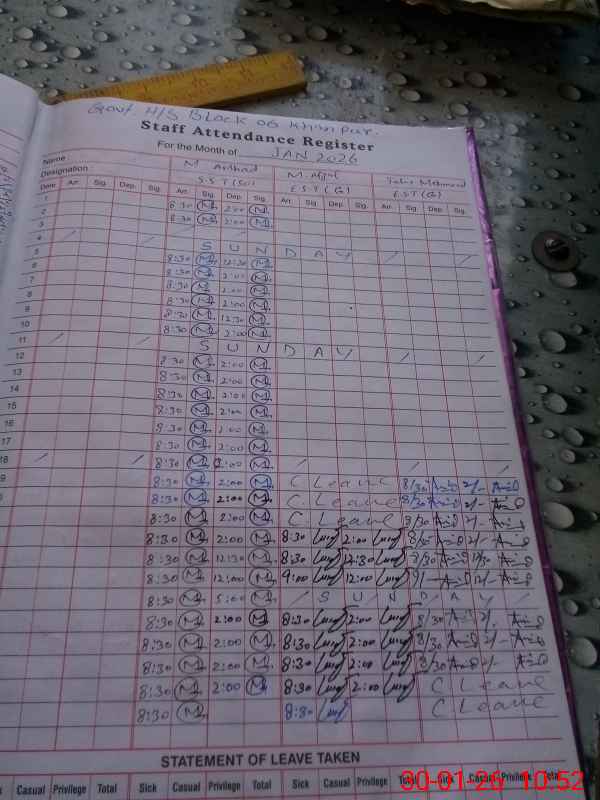 Govt H/S Block 06 Khim par.
Staff Attendance Register
For the Month of JAN 2026
Name M. Arshad M. Afzal Tahir Mehmood
Designation : S.S.T (Sc) E.S.T (G) E.S.T (G)
Date Arr. Sig. Dep. Sig. Arr. Sig. Dep. Sig. Arr. Sig. Dep. Sig. Arr. Sig. Dep. Sig.
1 8:30 M 2:00 M
2 8:30 M 2:00 M
3
4 S U N D A Y
5 8:30 M 12:30 M
6 8:30 M 2:00 M
7 8:30 M 2:00 M
8 8:30 M 2:00 M
9 8:30 M 12:30 M
10 8:30 M 2:00 M
11 S U N D A Y
12 8:30 M 2:00 M
13 8:30 M 2:00 M
14 8:30 M 2:00 M
15 8:30 M 2:00 M
16 8:30 M 2:00 M
17 8:30 M 2:00 M
18 8:30 M 2:00 M
8:30 M 2:00 M C. Leave 8/30 2/-
8:30 M 2:00 M C. Leave 8/30 2/-
8:30 M 2:00 M C. Leave 8/30 2/-
8:30 M 2:00 M 8:30 2:00 8/30 2/-
8:30 M 12:30 M 8:30 12:30 8/30 12/30
8:30 M 12:00 M 9:00 12:00 9/- 12/-
8:30 M 5:00 M S U N D A Y
8:30 M 2:00 M 8:30 2:00 8/30 2/-
8:30 M 2:00 M 8:30 2:00 8/30 2/-
8:30 M 2:00 M 8:30 2:00 8/30 2/-
8:30 M 2:00 M 8:30 2:00 C Leave
8:30 M 8:30 C Leave
STATEMENT OF LEAVE TAKEN
k Casual Privilege Total Sick Casual Privilege Total Sick Casual Privilege Total Sick Casual Privilege Total
30-01-26 10:52